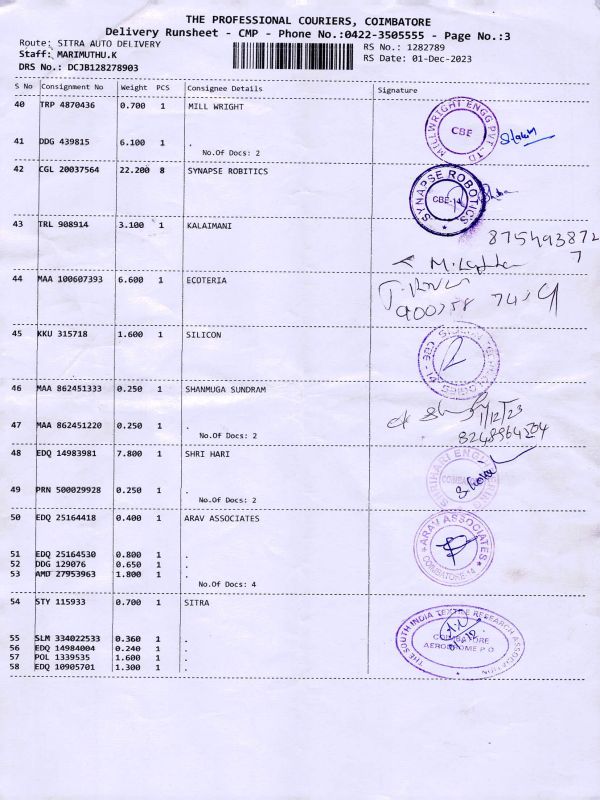 THE PROFESSIONAL COURIERS, COIMBATORE
Delivery Runsheet - CMP - Phone No.:0422-3505555 - Page No.:3
Route: SITRA AUTO DELIVERY
RS No.: 1282789
Staff: MARIMUTHU.K
RS Date: 01-Dec-2023
DRS No.: DCJB128278903
S No Consignment No Weight PCS Consignee Details Signature
40 TRP 4870436 0.700 1 MILL WRIGHT
MILLWRIGHT ENGG PVT. LTD
CBE
41 DDG 439815 6.100 1 .
No.Of Docs: 2
42 CGL 20037564 22.200 8 SYNAPSE ROBITICS
SYNAPSE ROBOTICS
CBE-14
43 TRL 908914 3.100 1 KALAIMANI
8754938727
44 MAA 100607393 6.600 1 ECOTERIA
45 KKU 315718 1.600 1 SILICON
2
46 MAA 862451333 0.250 1 SHANMUGA SUNDRAM
1/12/23
47 MAA 862451220 0.250 1 .
No.Of Docs: 2
8248964504
48 EDQ 14983981 7.800 1 SHRI HARI
49 PRN 500029928 0.250 1 .
No.Of Docs: 2
50 EDQ 25164418 0.400 1 ARAV ASSOCIATES
ARAV ASSOCIATES
COIMBATORE-14
51 EDQ 25164530 0.800 1 .
52 DDG 129076 0.650 1 .
53 AMD 27953963 1.800 1 .
No.Of Docs: 4
54 STY 115933 0.700 1 SITRA
THE SOUTH INDIA TEXTILE RESEARCH ASSOCIATION
COIMBATORE
AERODROME P.O
55 SLM 334022533 0.360 1 .
56 EDQ 14984004 0.240 1 .
57 POL 1339535 1.600 1 .
58 EDQ 10905701 1.300 1 .